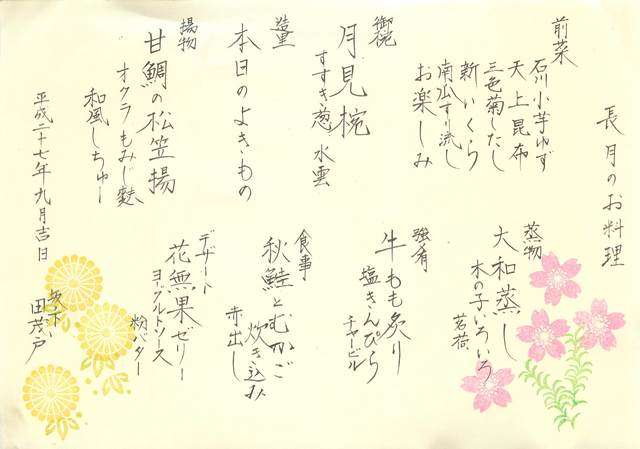 長月のお料理
前菜
石川小芋ゆず
天上昆布
三色菊したし
新いくら
南瓜すり流し
お楽しみ
御椀
月見椀
すすき葱 水雲
造里
本日のよきもの
揚物
甘鯛の松笠揚
オクラもみじ麩
和風しちゅー
蒸物
大和蒸し
木の子いろいろ
茗荷
強肴
牛もも炙り
塩きんぴら
チャービル
食事
秋鮭とむかご
炊き込み
赤出し
デザート
花無果ゼリー
ヨーグルトソース
粉バター
平成二十七年九月吉日
坂下
田茂戸